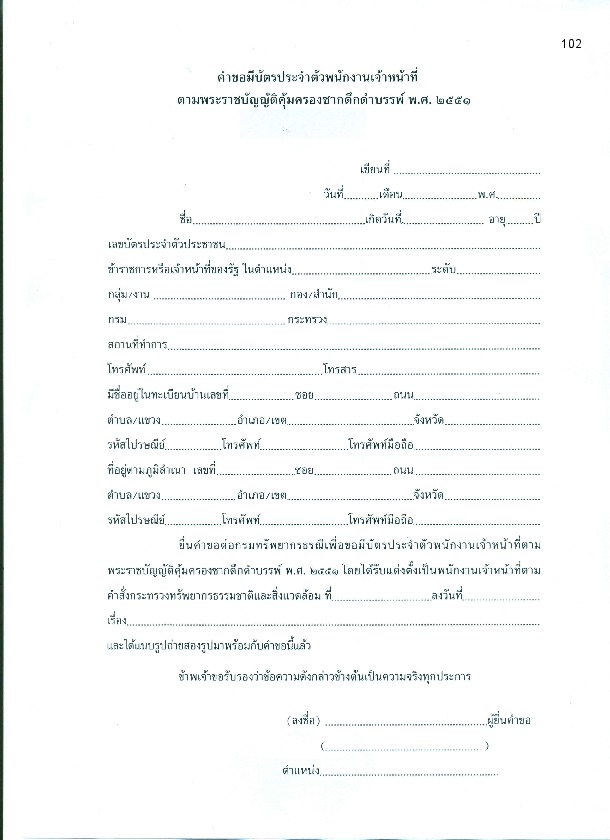 102
คำขอมีบัตรประจำตัวพนักงานเจ้าหน้าที่
ตามพระราชบัญญัติคุ้มครองซากดึกดำบรรพ์ พ.ศ. ๒๕๕๑
เขียนที่ ........................................
วันที่............เดือน..........................พ.ศ...............
ชื่อ..............................................เกิดวันที่........................ อายุ........ปี
เลขบัตรประจำตัวประชาชน........................................................................
ข้าราชการหรือเจ้าหน้าที่ของรัฐ ในตำแหน่ง........................................ระดับ........................
กลุ่ม/งาน ........................................ กอง/สำนัก........................................................
กรม............................................ กระทรวง........................................................
สถานที่ทำการ........................................................................................
โทรศัพท์................................................โทรสาร................................................
มีชื่ออยู่ในทะเบียนบ้านเลขที่..................ซอย........................ถนน..................................
ตำบล/แขวง........................อำเภอ/เขต..................................จังหวัด..........................
รหัสไปรษณีย์..................โทรศัพท์........................โทรศัพท์มือถือ..................................
ที่อยู่ตามภูมิลำเนา เลขที่........................ซอย........................ถนน..................................
ตำบล/แขวง........................อำเภอ/เขต..................................จังหวัด..........................
รหัสไปรษณีย์..................โทรศัพท์........................โทรศัพท์มือถือ..................................
ยื่นคำขอต่อกรมทรัพยากรธรณีเพื่อขอมีบัตรประจำตัวพนักงานเจ้าหน้าที่ตาม
พระราชบัญญัติคุ้มครองซากดึกดำบรรพ์ พ.ศ. ๒๕๕๑ โดยได้รับแต่งตั้งเป็นพนักงานเจ้าหน้าที่ตาม
คำสั่งกระทรวงทรัพยากรธรรมชาติและสิ่งแวดล้อม ที่..........................ลงวันที่......................
เรื่อง................................................................................................
และได้แนบรูปถ่ายสองรูปมาพร้อมกับคำขอนี้แล้ว
ข้าพเจ้าขอรับรองว่าข้อความดังกล่าวข้างต้นเป็นความจริงทุกประการ
(ลงชื่อ) ............................................ผู้ยื่นคำขอ
(............................................)
ตำแหน่ง................................................